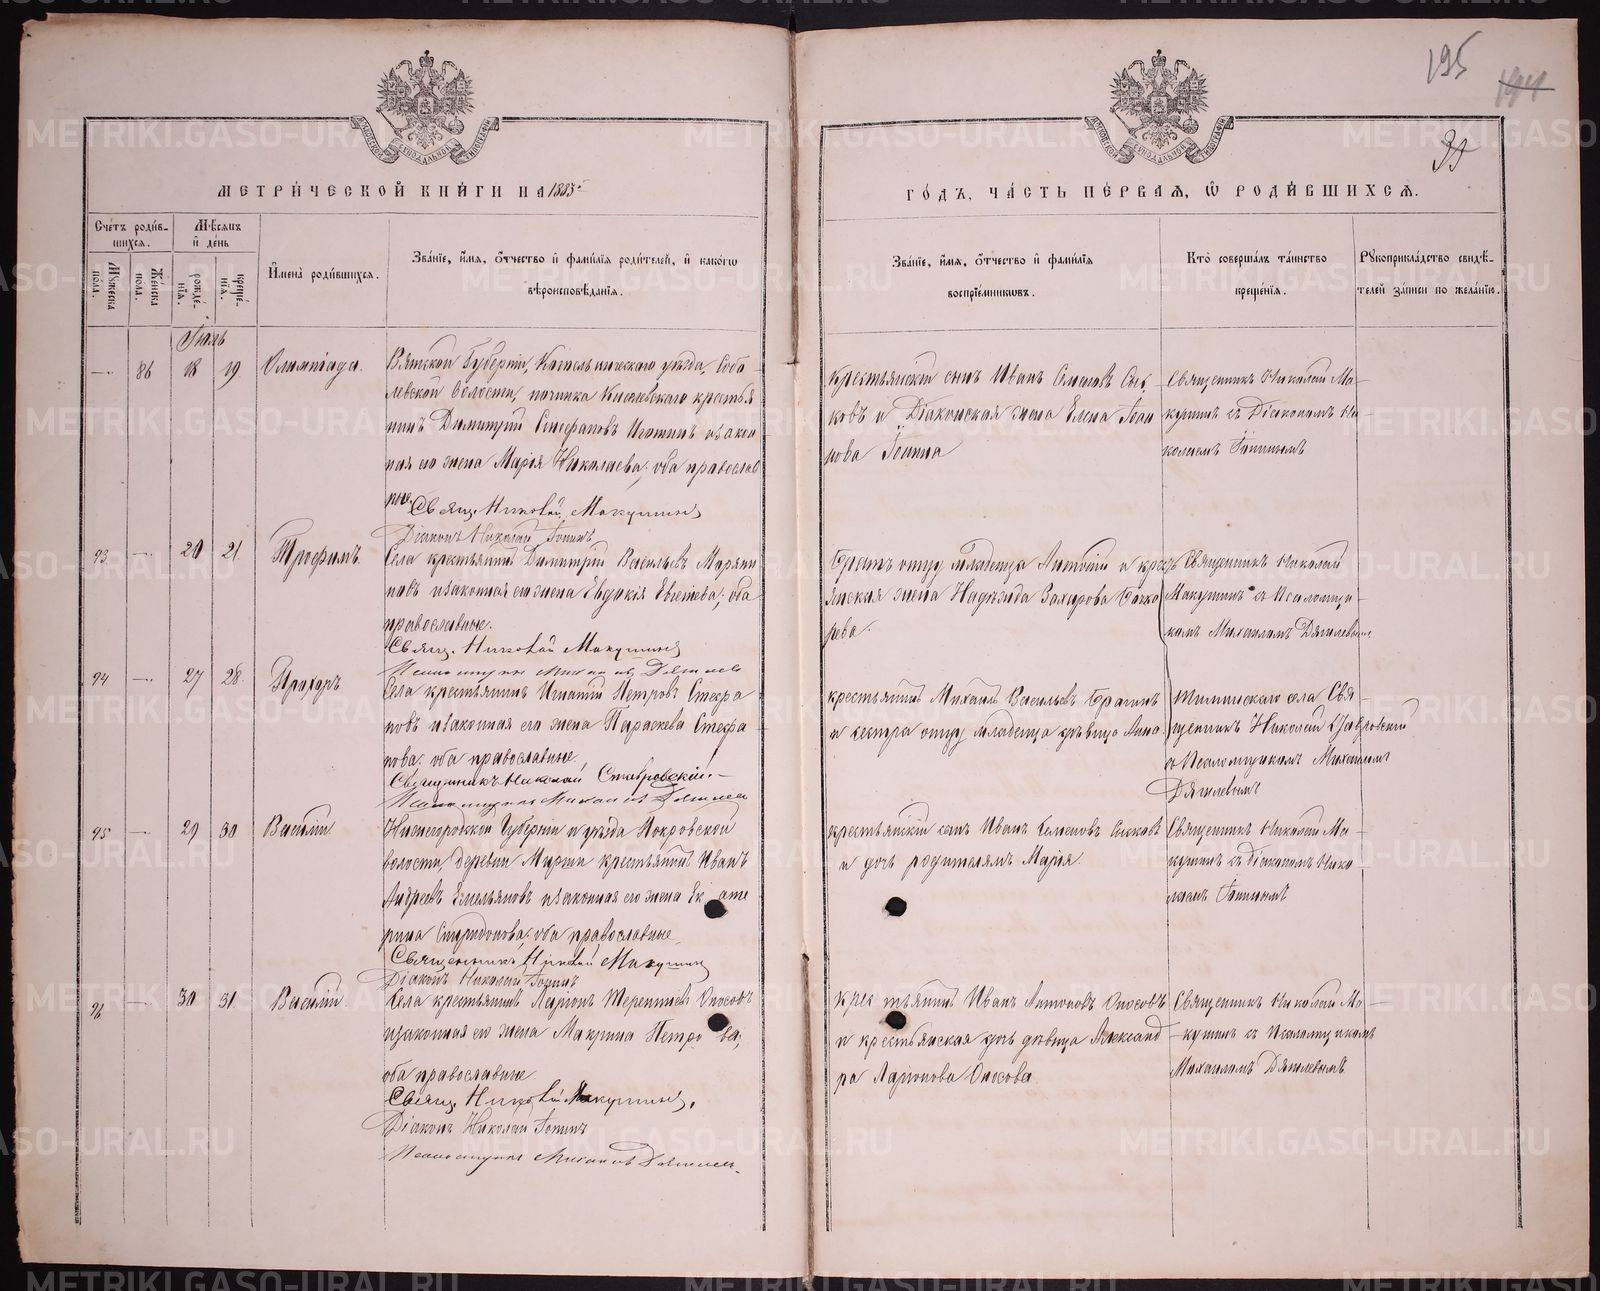 195
МЕТРИЧЕСКОЙ КНИГИ НА 1883й
ГОДЪ, ЧАСТЬ ПЕРВАЯ, Ѡ РОДИВШИХСЯ.
Счетъ родив-
шихся.
Мѣсяцъ
и день
Мужеска
пола.
Женска
пола.
рожде-
нія.
креще-
нія.
Имена родившихся.
Званіе, имя, отчество и фамилія родителей, и какогѡ
вѣроисповѣданія.
Званіе, имя, отчество и фамилія
воспріемниковъ.
Кто совершалъ таинство
крещенія.
Рукоприкладство свидѣ-
телей записи по желанію.
Іюль
86 18 19 Олимпіада.
Вятской Губерніи, Котельническаго уѣзда, Собо
левской Волости, починка крестья
нинъ Димитрій Стефановъ и закон
ная его жена Марія Николаева; оба православ
ные. Свящ. Николай Макушинъ
Діаконъ Николай
Крестьянскій сынъ Иванъ
ковъ и Діаконская жена Елена Іоан
нова
Священникъ Николай Ма-
кушинъ съ Діакономъ Ни-
колаемъ
93. 20 21. Трофимъ.
Села крестьянинъ Димитрій Васильевъ
новъ и законная его жена Евдокія; оба
православные.
Свящ. Николай Макушинъ
Псаломщикъ Михаилъ Дягилевъ
Братъ отцу младенца и кресть
янская жена Надежда Захарова
рева.
Священникъ Николай
Макушинъ съ Псаломщи
комъ Михаиломъ Дягилевымъ
94 27 28. Прохоръ
Села крестьянинъ Игнатій Петровъ Стефа
новъ и законная его жена Параскева Стефа
нова; оба православные.
Священникъ Николай Ставровскій.
Псаломщикъ Михаилъ Дягилевъ
крестьянинъ Михаилъ Васильевъ
и сестра отцу младенца дѣвица Анна.
села Свя-
щенникъ Николай Ставровскій
съ Псаломщикомъ Михаиломъ
Дягилевымъ
95 29 30 Василій
Нижегородской Губерніи и уѣзда Покровской
волости, деревни крестьянинъ Иванъ
Андреевъ Емельяновъ и законная его жена Екате
рина Спиридонова; оба православные.
Священникъ Николай Макушинъ
Діаконъ Николай
крестьянскій сынъ Иванъ Семеновъ
и дочь родителямъ Марія.
Священникъ Николай Ма-
кушинъ съ діакономъ Нико
лаемъ
96 30 31. Василій
Села крестьянинъ Ларіонъ Терентіевъ
и законная его жена Макрина Петрова;
оба православные.
Свящ. Николай Макушинъ.
Діаконъ Николай
Псаломщикъ Михаилъ Дягилевъ.
крестьянинъ Иванъ Антоновъ
и крестьянская дочь дѣвица Александ
ра Ларіонова
Священникъ Николай Ма-
кушинъ съ Псаломщикомъ
Михаиломъ Дягилевымъ
METRIKI.GASO-URAL.RU